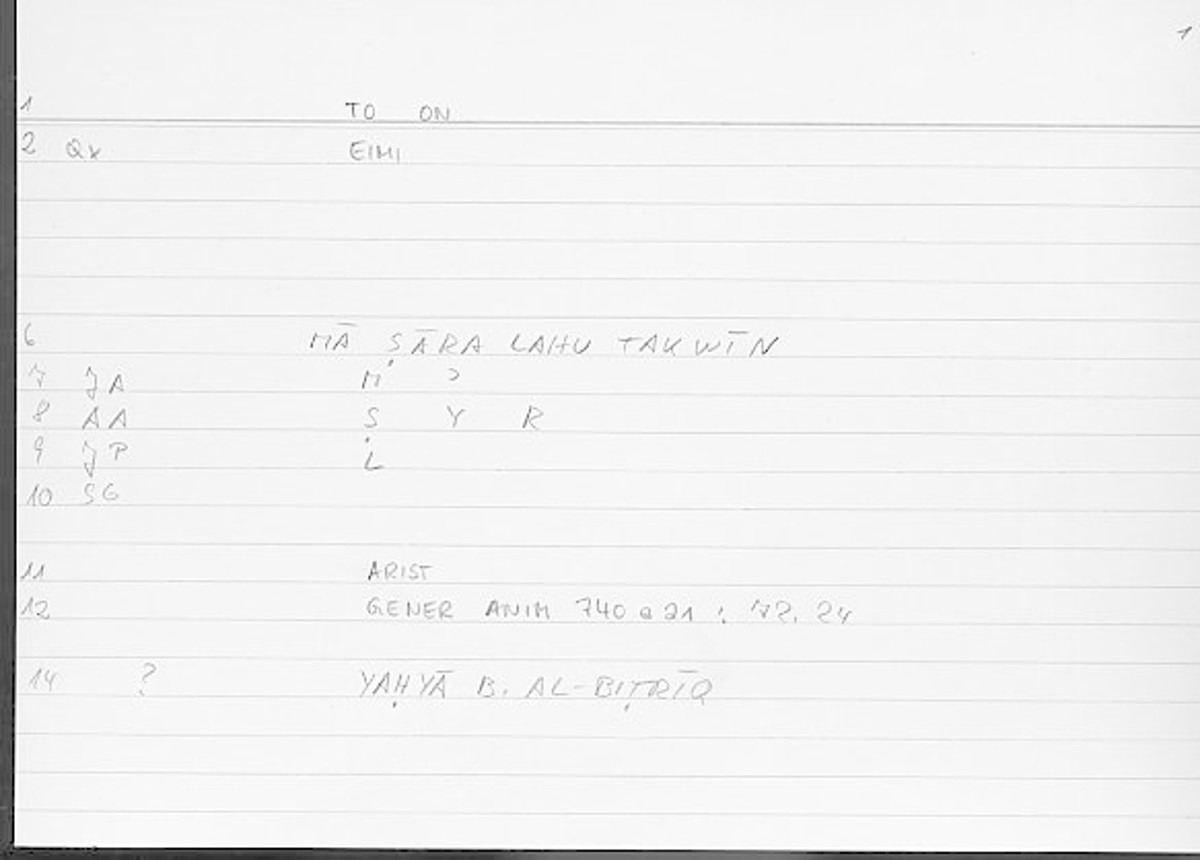 1
1 TO ON
2 Qx EIMI
6 MĀ ṢĀRA LAHU TAKWĪN
7 JA M ʾ
8 AA Ṣ Y R
9 JP L
10 SG
11 ARIST
12 GENER ANIM 740 a 21 : 72. 24
14 ? YAḤYĀ B. AL-BIṬRĪQ